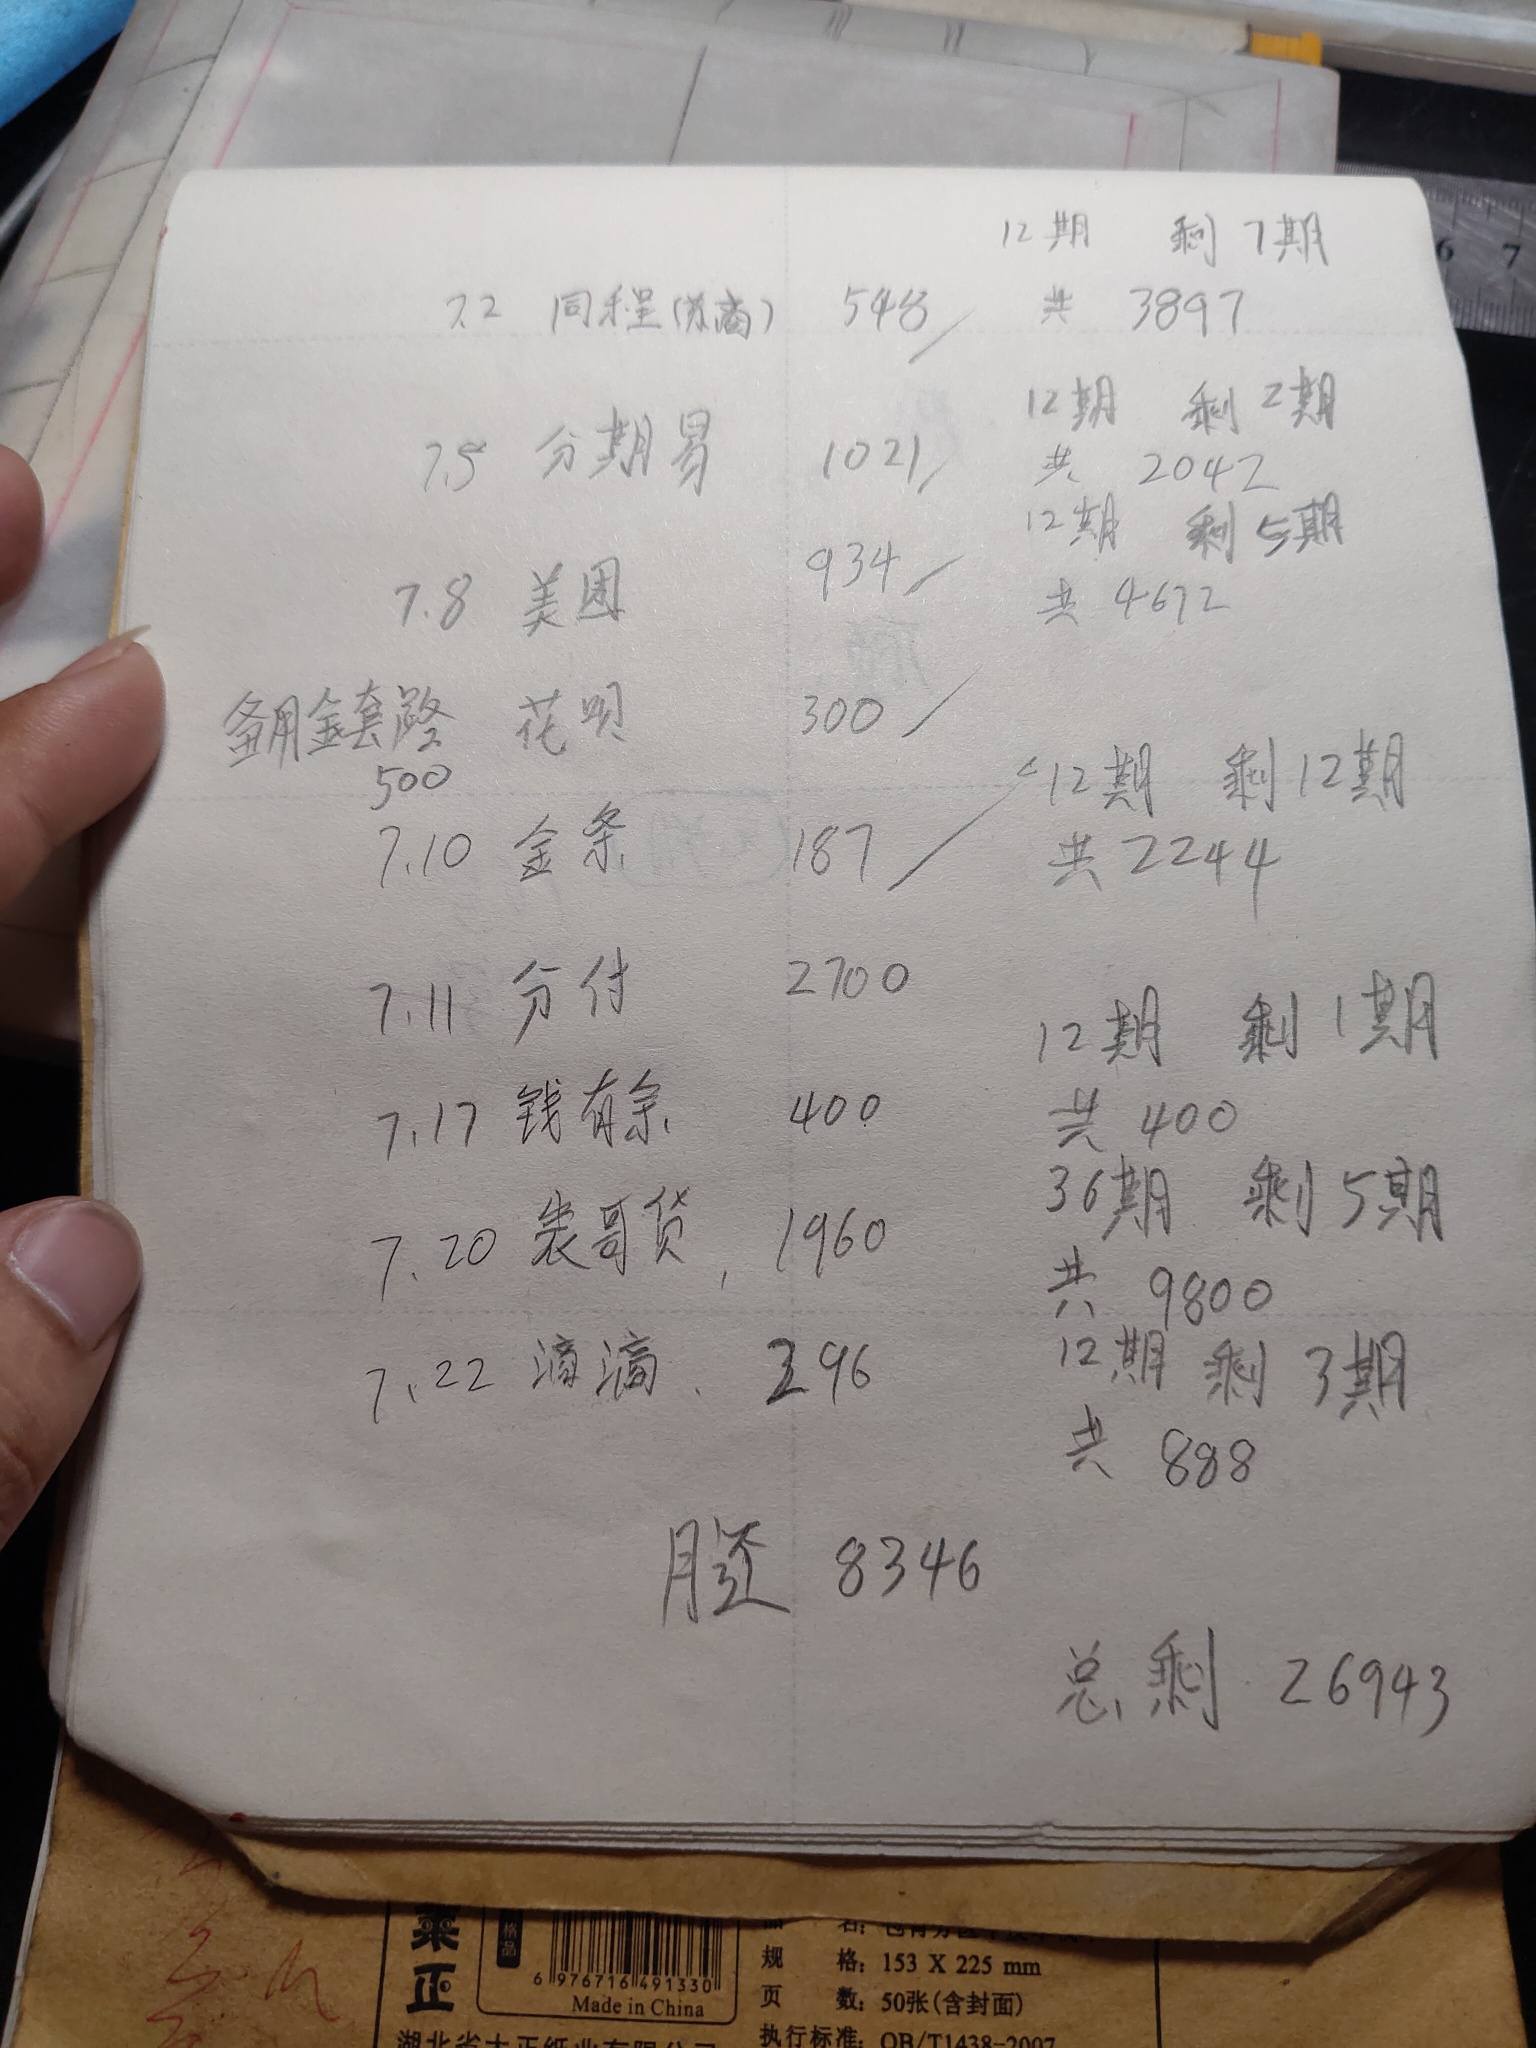 12期 剩7期
7.2 同程(苏商) 548 共 3897
12期 剩2期
7.5 分期易 1021 共 2042
12期 剩5期
7.8 美团 934 共 4672
备用金套路 花呗 300
500
12期 剩12期
7.10 金条 187 共2244
7.11 分付 2700
12期 剩1期
7.17 钱有余 400 共 400
36期 剩5期
7.20 表哥贷, 1960 共 9800
12期 剩3期
7.22 滴滴. 296
共 888
月还 8346
总剩 26943
6 7
6 976716 491330
Made in China
规 格: 153 X 225 mm
页 数: 50张(含封面)
执行标准: QB/T1438-2007
正